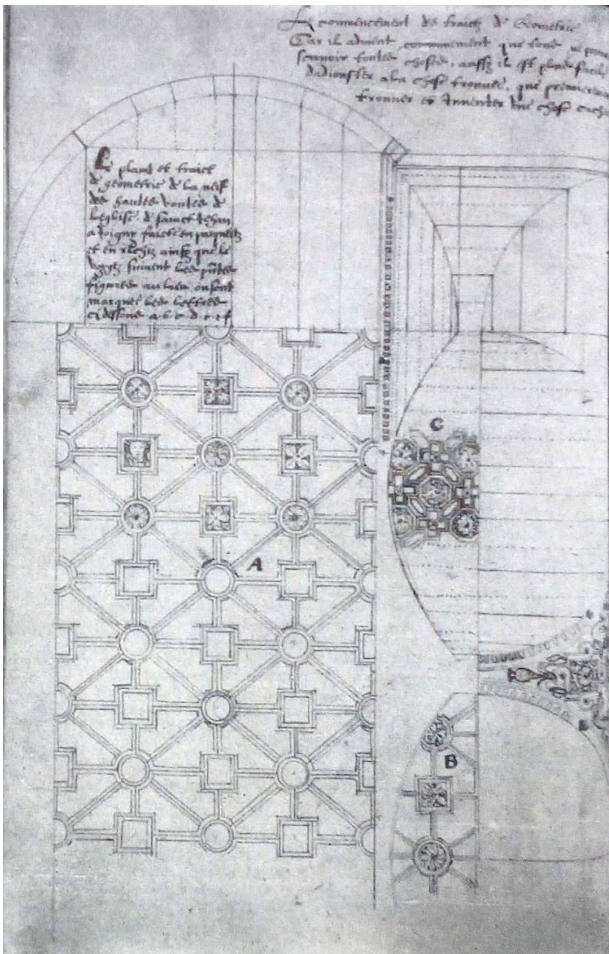 Le commencement de traictz de Geometrie
Car il advient communement que tous ne
scavoir toutes choses, aussi il est plus facil
dadiouster a la chose trouvee, que premierement
trouver et Inventer une chose
Le plant et traict
de geometrie de la nef
des haultes voultes de
Leglise de sainct Jehan
a Joigny faict en
et en ainsi que le
les
figures au lieu ou sont
marquez les lettres
cy dessoubz a b c d e f
C
A
B
E